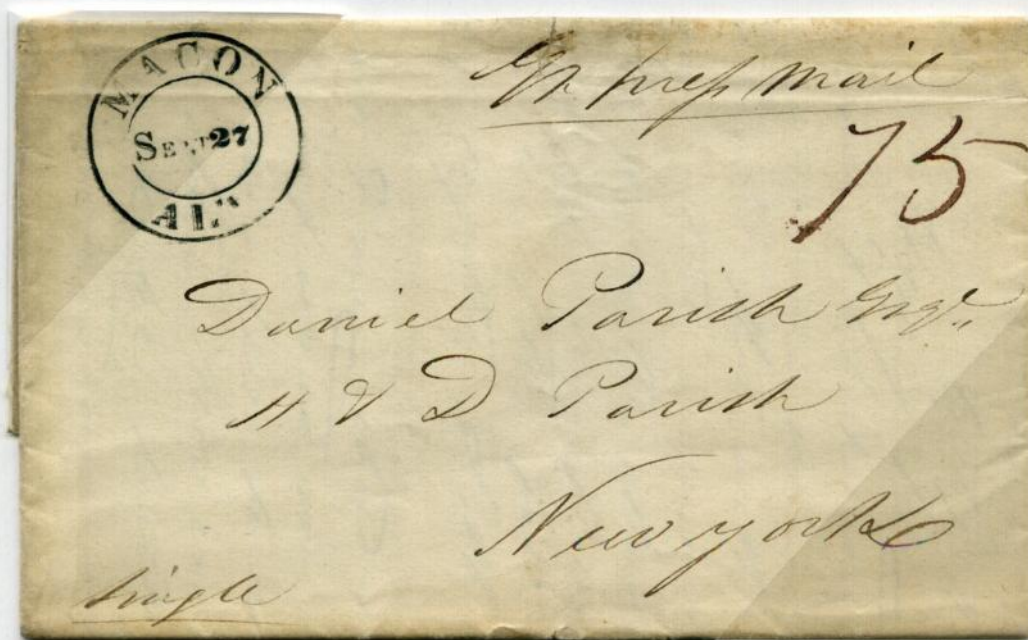 MACON
SEPT 27
ALA
Express Mail
75
Daniel Parish Esqr.
H & D Parish
New york
Single